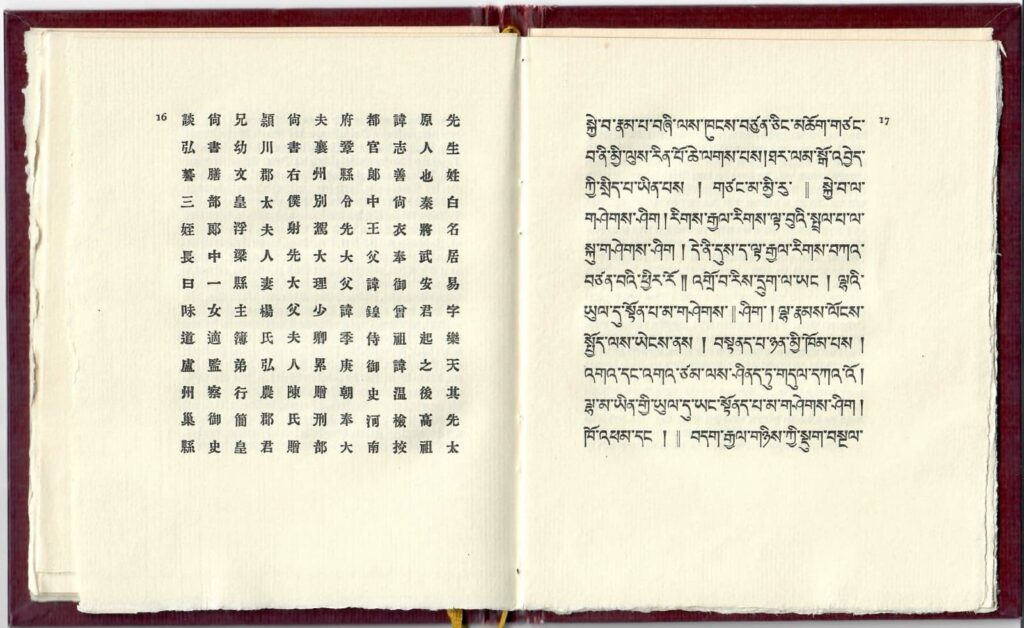 16
先生姓白名居易字樂天其先太
原人也秦將武安君起之後高祖
諱志善尙衣奉御曾祖諱溫檢挍
都官郞中王父諱鍠侍御史河南
府鞏縣令先大父諱季庚朝奉大
夫襄州別駕大理少卿累贈刑部
尙書右僕射先大父夫人陳氏贈
潁川郡太夫人妻楊氏弘農郡君
兄幼文皇浮梁縣主簿弟行簡皇
尙書膳部郞中一女適監察御史
談弘謩三姪長曰味道盧州巢縣
17
སྐྱེ་བ་རྣམ་པ་བཞི་ལས་ཁུངས་བཙུན་ཅིང་མཆོག་གཙང་
བ་ནི་མྱི་ལུས་རིན་པོ་ཆེ་ལགས་པས།ཐར་ལམ་སྒོ་འབྱེད་
ཀྱི་སྲིད་པ་ཡིན་བས ། གཙང་མ་མྱི་རུ་ ༎ སྐྱེ་བ་ལ་
ག་ཤེགས་ཤིག ། རིགས་རྒྱལ་རིགས་ལྟ་བུའི་སྤྲུལ་པ་ལ་
སྐུ་གཤེགས་ཤིག ། དེ་ནི་དུས་ད་ལྟ་རྒྱལ་རིགས་བཀའ་
བཙན་བའི་ཕྱིར་རོ ༎ འགྲོ་བ་རིས་དྲུག་ལ་ཡང ། ལྷའི་
ཡུལ་དུ་སྟོན་པ་མ་གཤེགས་ ༎ ཤིག ། ལྷ་རྣམས་ལོངས་
སྤྱོད་ལས་ཡེངས་ནས ། བསྟནད་པ་ཉན་མྱི་ཁོམ་པས །
འགའ་དང་འགའ་ཙམ་ལས་ཤིནད་ཏུ་གདུལ་དཀའ་འོ །
ལྷ་མ་ཡིན་གྱི་ཡུལ་དུ་ཡང་སྟོནད་པ་མ་གཤེགས་ཤིག །
ཁོ་འཕམ་དང ། ༎ བདག་རྒྱལ་གཉིས་ཀྱི་སྡུག་བསྔལ་